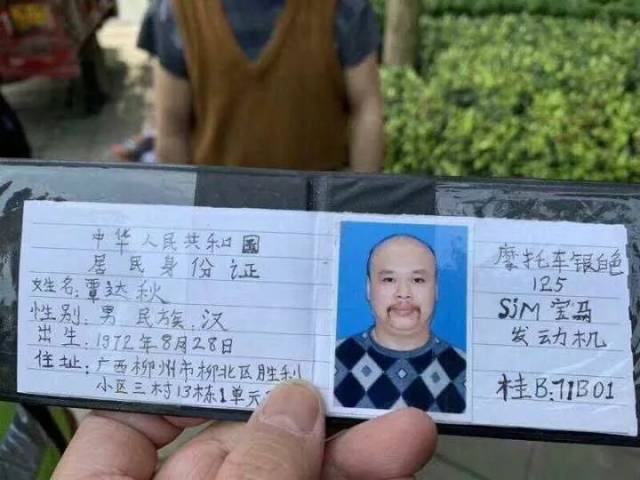 中华人民共和国
居民身份证
女性名:覃达秋
性别:男 民族:汉
出生:1972年8月28日
住址:广西柳州市柳北区胜利
小区三村13栋1单元
摩托车银色
125
SJM宝马
发动机
桂B:71B01